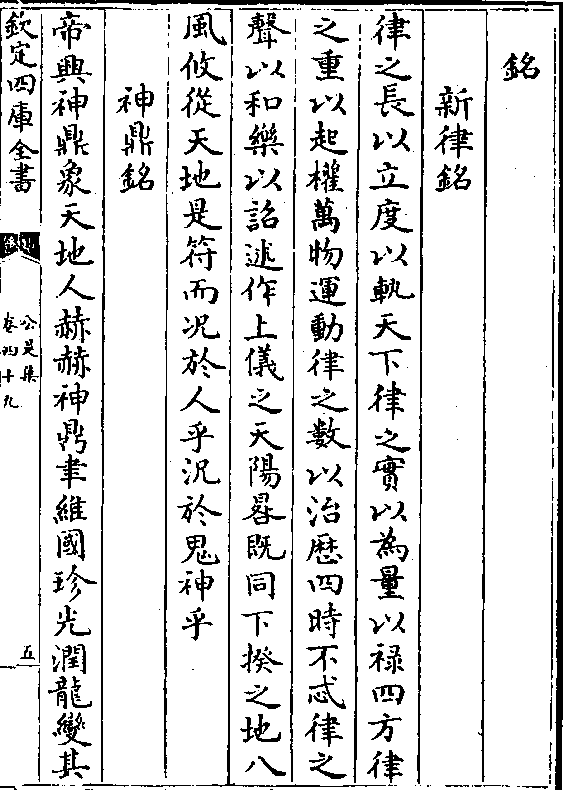 銘
新律銘
律之長以立度以軌天下律之實以為量以祿四方律
之重以起權萬物運動律之數以治歴四時不忒律之
聲以和樂以詔述作上儀之天陽晷既同下揆之地八
風攸從天地是符而况於人乎況於鬼神乎
神鼎銘
帝興神鼎象天地人赫赫神鼎聿維國珍光潤龍變其
欽定四庫全書
公是集
卷四十九
五